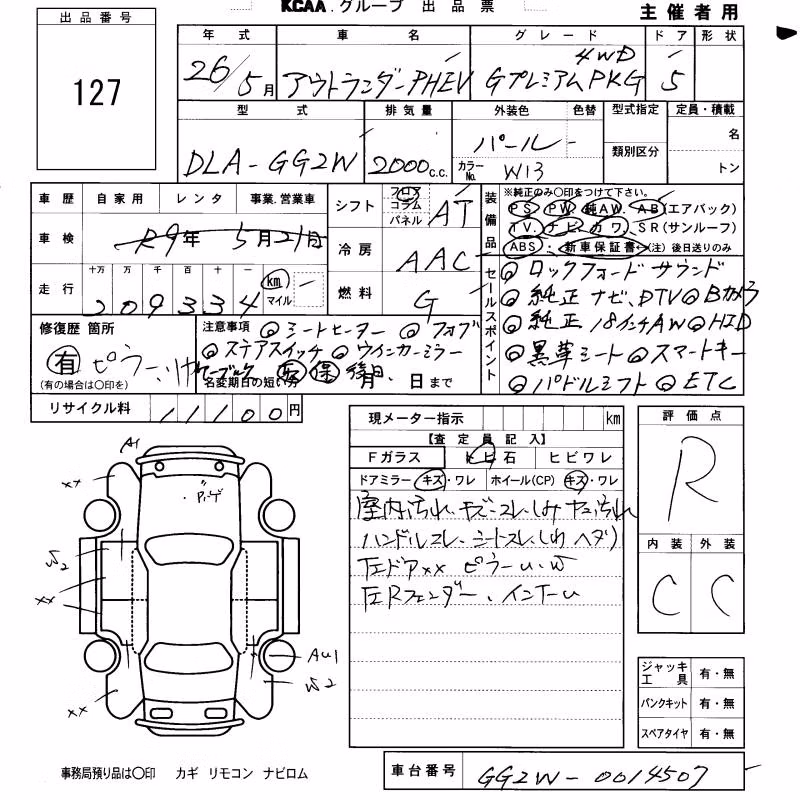 KCAA.グループ 出品票
主催者用
出品番号
127
年式 車名 グレード ドア 形状
26/5月 アウトランダーPHEV 4WD GプレミアムPKG 5
型式 排気量 外装色 色替 型式指定 定員・積載
DLA-GG2W 2000c.c. パール - 名
カラーNo. W13 類別区分 トン
車歴 自家用 レンタ 事業.営業車
車検 R9年 5月21日
走行 十万 万 千 百 十 一
209334 km マイル
シフト フロア コラム パネル AT
冷房 AAC
燃料 G
装備品 ※純正のみ〇印をつけて下さい。
PS PW 純AW. AB(エアバック)
TV. ナビ. カワ. SR(サンルーフ)
ABS 新車保証書←(注) 後日送りのみ
セールスポイント
◎ロックフォードサウンド
◎純正ナビ、DTV◎Bカメラ
◎純正18インチAW◎HID
◎黒革シート◎スマートキー
◎パドルシフト◎ETC
修復歴 箇所
有 ピラー、
(有の場合は〇印を)
注意事項 ◎シートヒーター ◎フォグ
◎ステアスイッチ ◎ウインカーミラー
保 後日、
名変期日の短い分 月 日まで
リサイクル料 11100円
現メーター指示 km
【査定員記入】
Fガラス トビ石 ヒビワレ
ドアミラー キズ・ワレ ホイール(CP) キズ・ワレ
室内汚れ、キズ、スレ、しみ
ハンドルスレ、シートスレ、しわ ヘタ)
左ドアxx ピラーu、w
左Rフェンダー、インナーu
評価点
R
内装 外装
C C
ジャッキ工具 有・無
パンクキット 有・無
スペアタイヤ 有・無
A1
xx
W2
xx
xx
AU1
W2
事務局預り品は〇印 カギ リモコン ナビロム
車台番号 GG2W-0014507